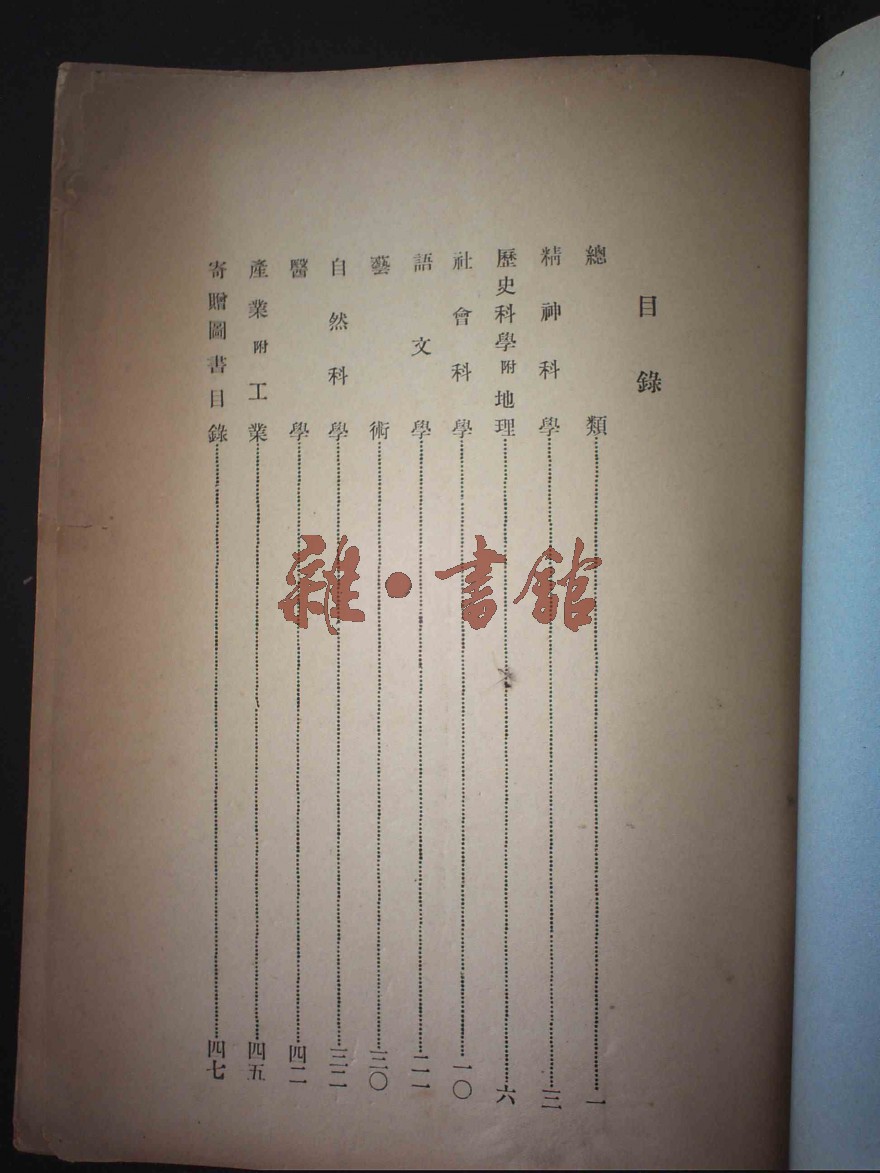 目錄
總類……一
精神科學……三
歷史科學附地理……六
社會科學……一〇
語文學……二一
藝術……三〇
自然科學……三二
醫學……四二
產業附工業……四五
寄贈圖書目錄……四七
雜·書館